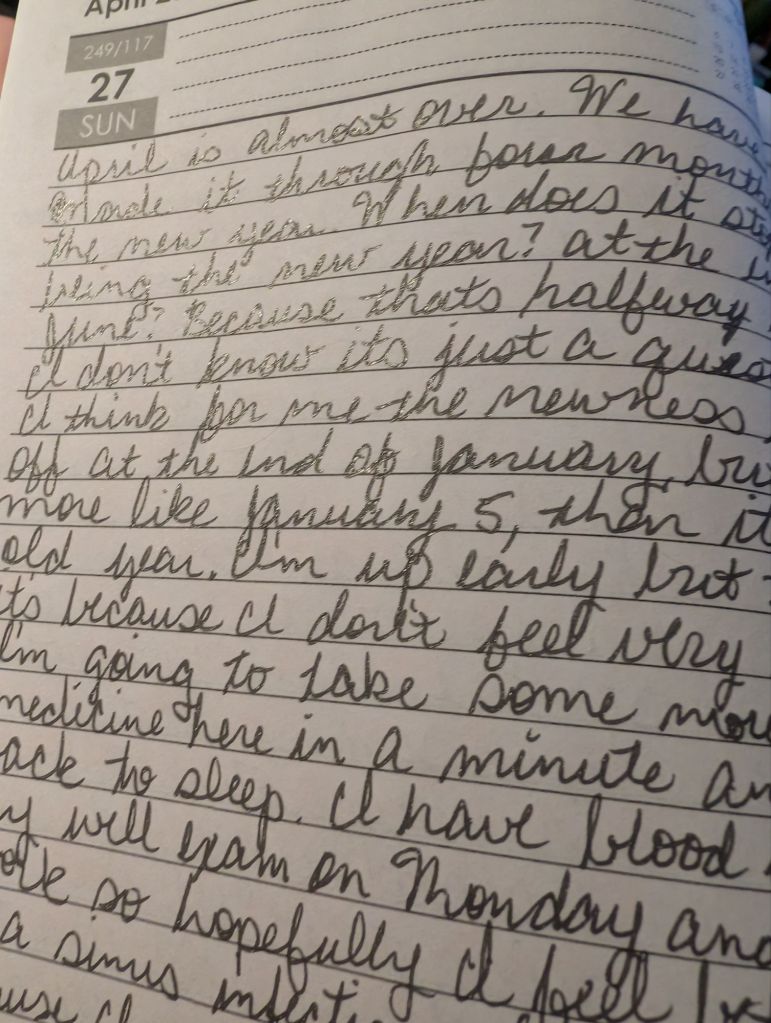 April
249/117
27
SUN
April is almost over. We have
made it through four month
the new year. When does it sto
being the new year? At the
June? Because thats halfway
I don't know its just a ques
I think for me the newness
off at the end of January, bu
more like January 5, then it
old year. I'm up early but
ts because I don't feel very
I'm going to take some mor
medicine here in a minute an
ack to sleep. I have blood
y well exam on Monday and
so hopefully I feel
a sinus infecti
use I